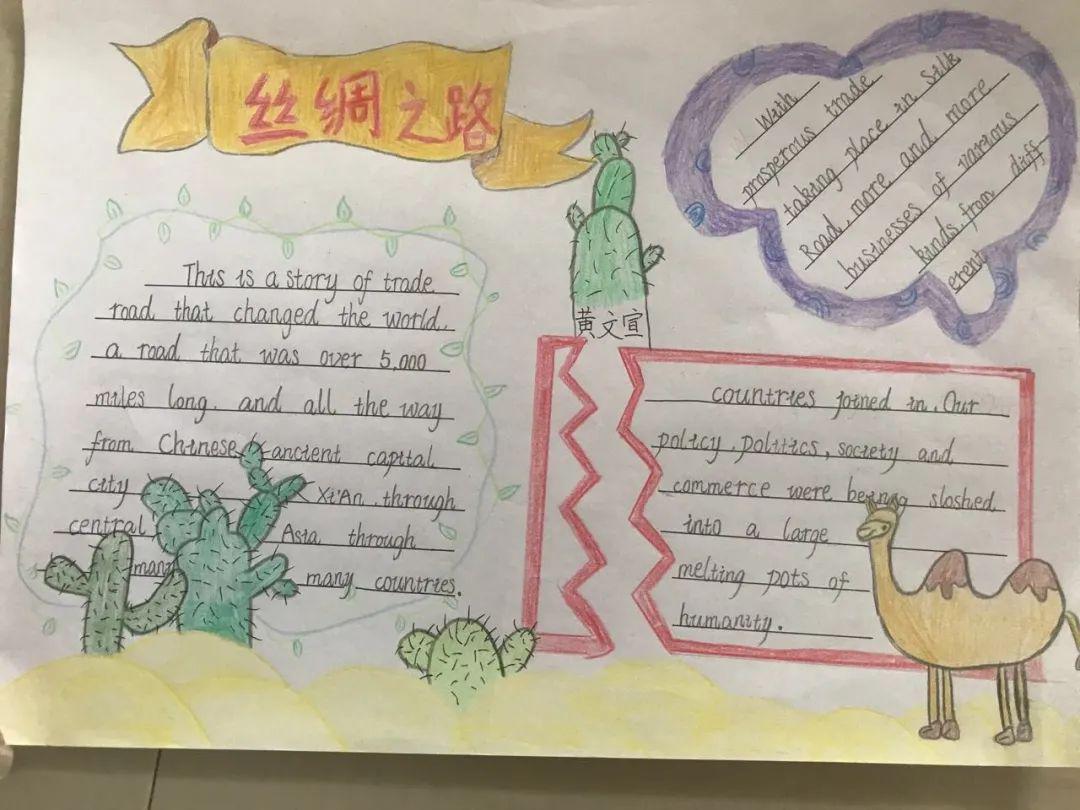 丝绸之路
This is a story of trade
road that changed the world,
a road that was over 5,000
miles long, and all the way
from Chinese ancient capital
city Xi'An, through
central Asia through
many many countries.
With
prosperous trade
taking place in Silk
Road, more and more
businesses of various
kinds from diff
erent
黄文宣
countries joined in. Our
policy, politics, society and
commerce were being sloshed
into a large
melting pots of
humanity.